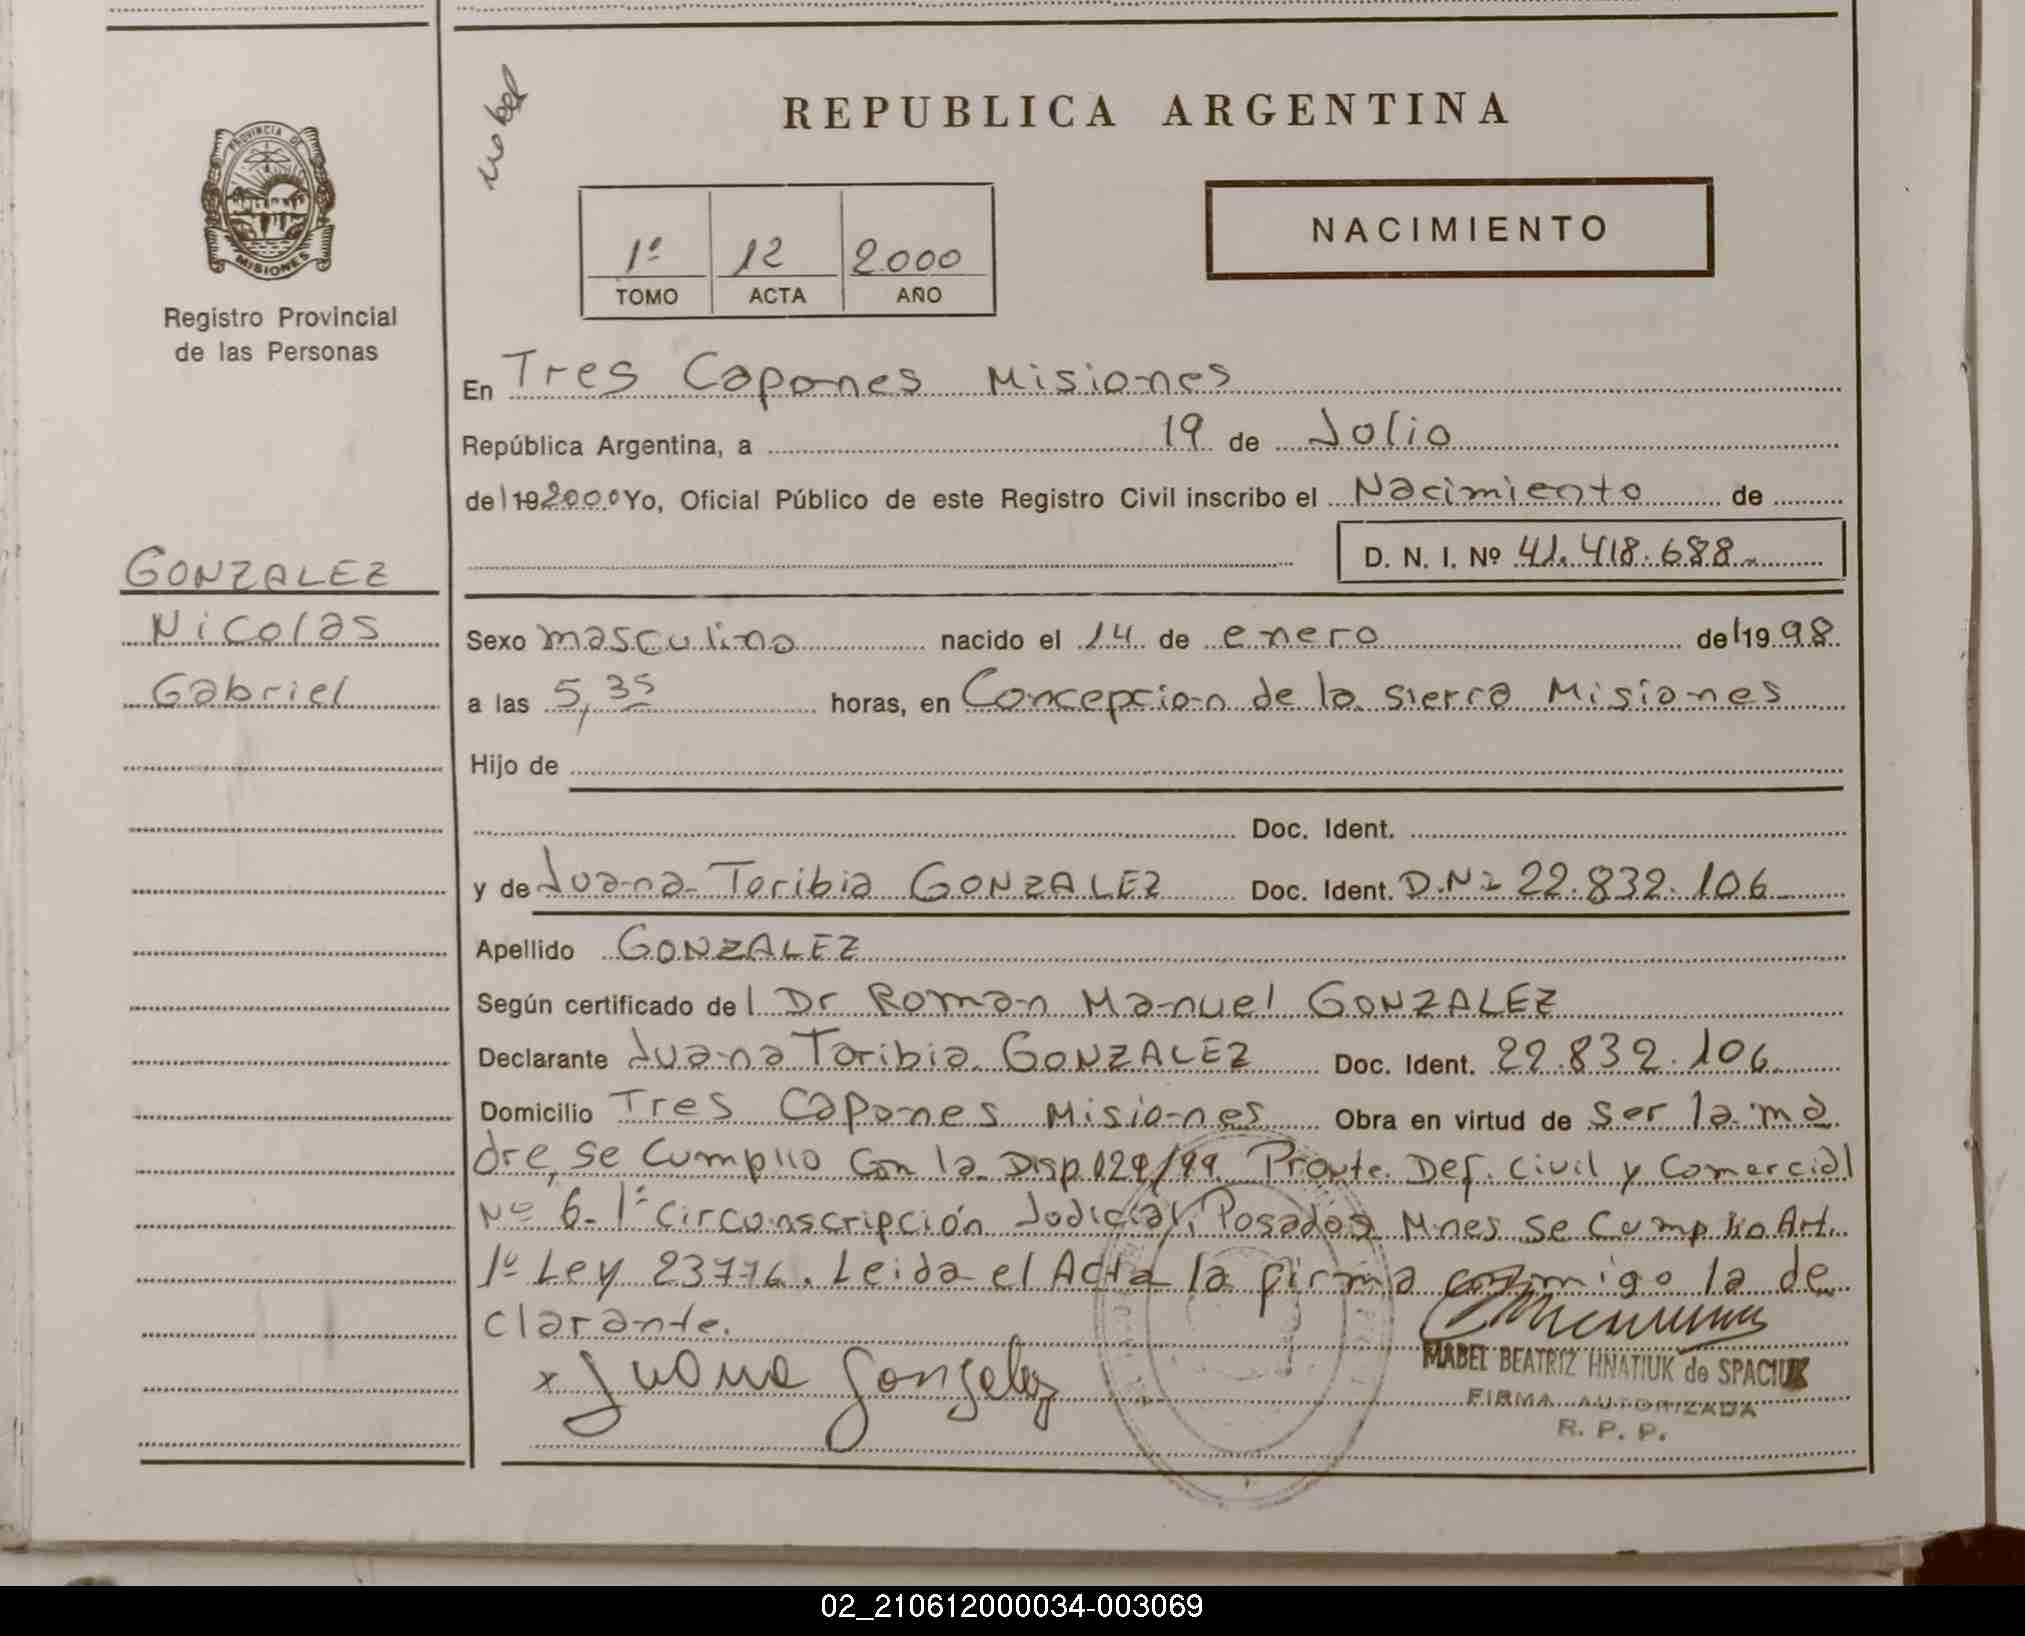 Mabel
REPUBLICA ARGENTINA
PROVINCIA DE
MISIONES
Registro Provincial
de las Personas
1º 12 2.000
TOMO ACTA AÑO
NACIMIENTO
En Tres Capones Misiones
República Argentina, a 19 de Julio
del 19 2000 Yo, Oficial Público de este Registro Civil inscribo el Nacimiento de
D. N. I. Nº 41.418.688
GONZALEZ
Nicolas
Gabriel
Sexo masculino nacido el 14 de enero de 1998
a las 5,35 horas, en Concepcion de la sierra Misiones
Hijo de
Doc. Ident.
y de Juana Toribia GONZALEZ Doc. Ident. D.N.I 22.832.106
Apellido GONZALEZ
Según certificado del Dr Roman Manuel GONZALEZ
Declarante Juana Toribia GONZALEZ Doc. Ident. 22.832.106
Domicilio Tres Capones Misiones Obra en virtud de ser la ma
dre, se cumplio con la Disp 029/99 Def. Civil y Comercial
Nº 6- 1º Circunscripción Judicial, Posadas Mnes se cumplio Art.
1º Ley 23776. Leida el Acta la firma conmigo la de
clarante.
x Juana Gonzalez
MABEL BEATRIZ HNATIUK de SPACIUK
FIRMA AUTORIZADA
R. P. P.
02_210612000034-003069